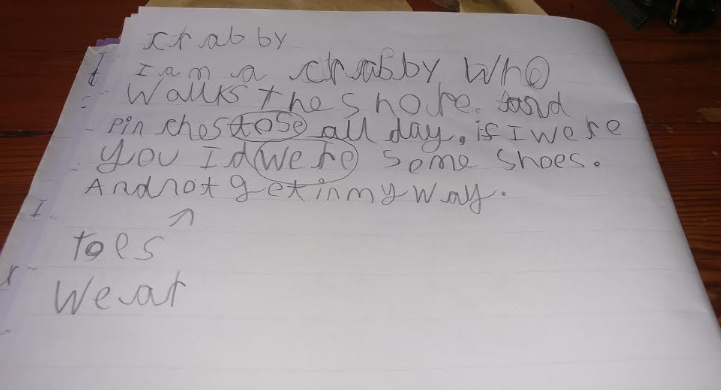 crabby
I am a crabby who
walks the shore. and
pinches tose all day, if I were
you Id were some shoes.
And not get in my way.
toes
Wear